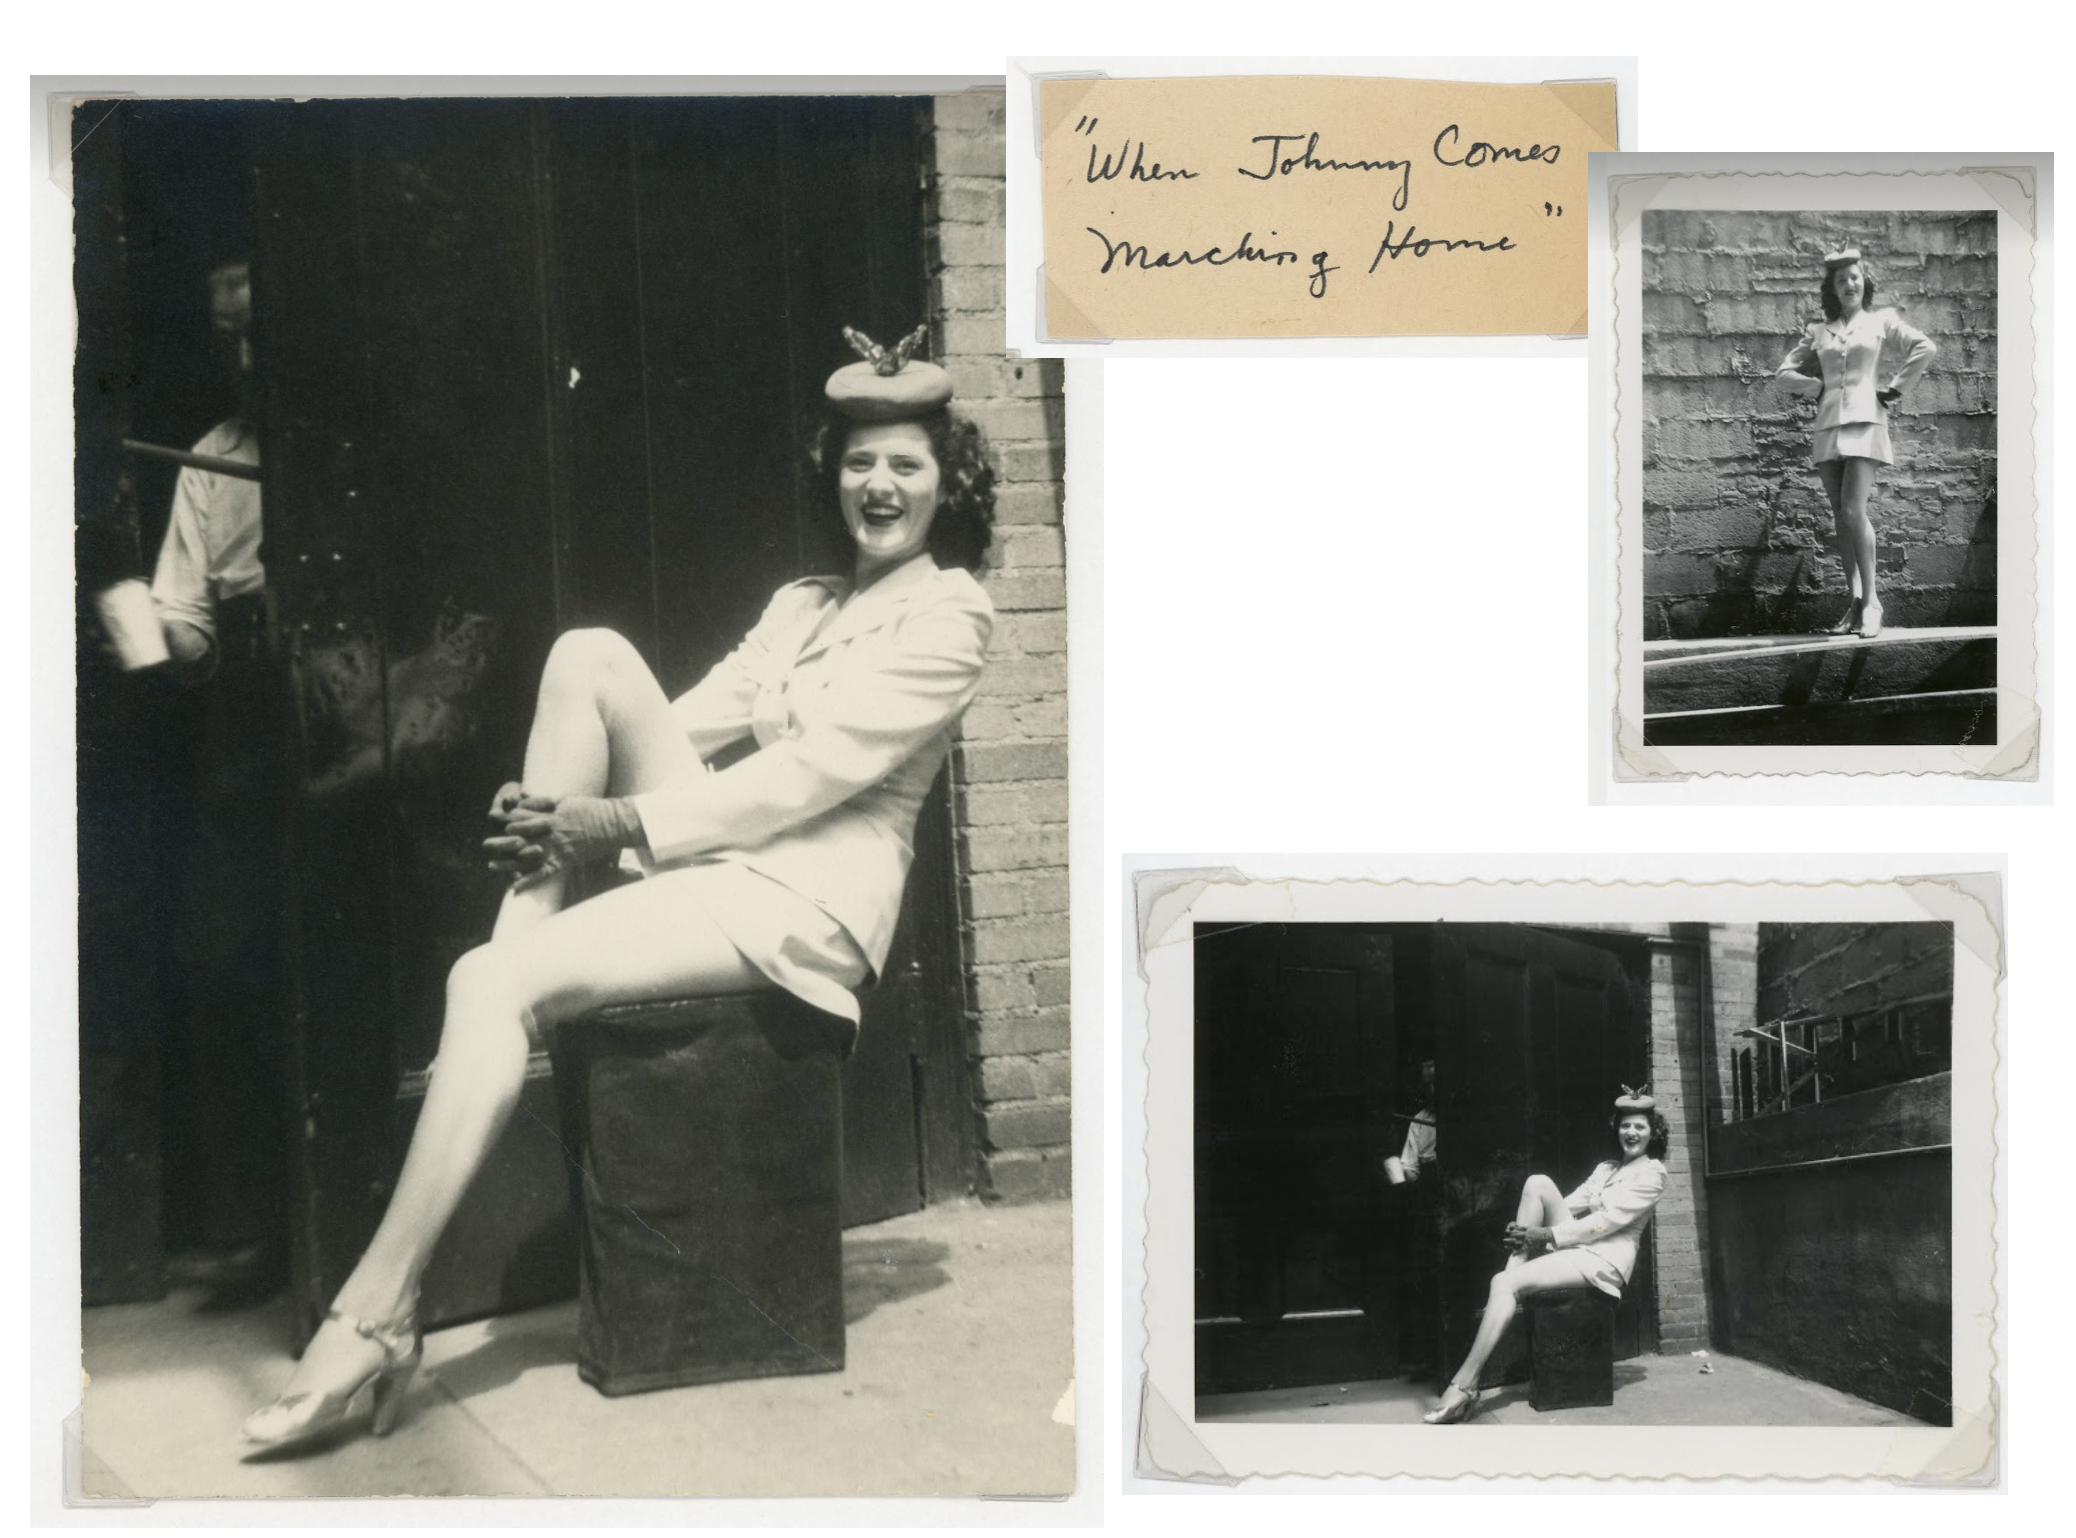 "When Johnny Comes
Marching Home"